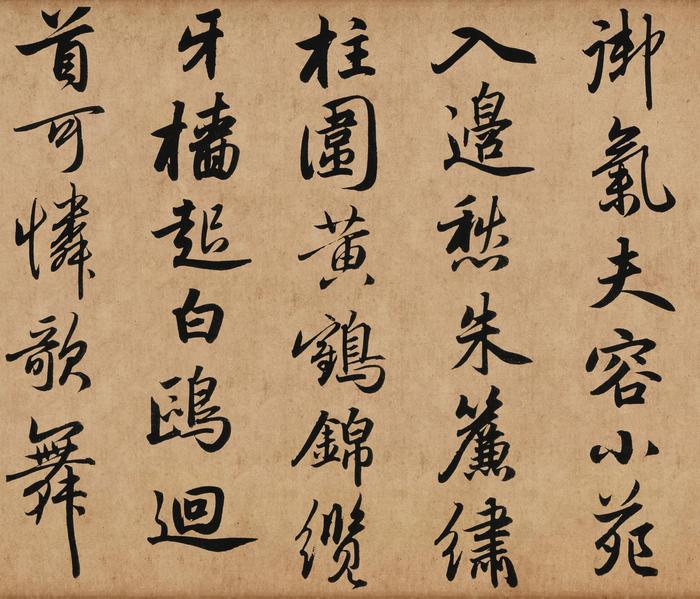 御氣夫容小苑
入邉愁朱簾繡
柱圍黄鶴錦纜
牙檣起白鷗迴
首可憐歌舞